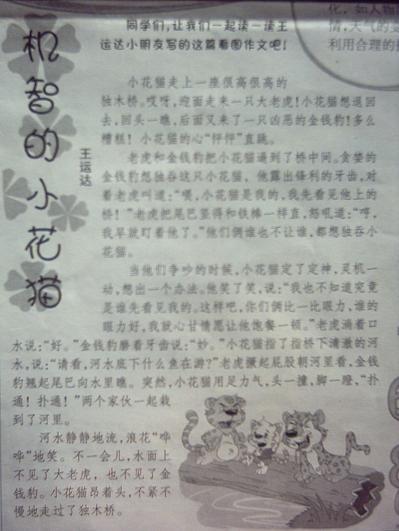 机智的小花猫
王运达
同学们,让我们一起读一读王
运达小朋友写的这篇看图作文吧!
小花猫走上一座很高很高的
独木桥。哎呀,迎面走来一只大老虎!小花猫想退回
去,回头一瞧,后面又来了一只凶恶的金钱豹!多么
糟糕!小花猫的心“怦怦”直跳。
老虎和金钱豹把小花猫逼到了桥中间。贪婪的
金钱豹想独吞这只小花猫,他露出锋利的牙齿,对
着老虎叫道:“喂,小花猫是我的,我先看见他上的
桥!”老虎把尾巴竖得和铁棒一样直,怒吼道:“哼,
我早就盯着他了。”他们俩谁也不让谁,都想独吞小
花猫。
当他们争吵的时候,小花猫定了定神,灵机一
动,想出一个办法。他笑了笑,说:“我也不知道究竟
是谁先看见我的。这样吧,你们俩比一比眼力,谁的
眼力好,我就心甘情愿让他饱餐一顿。”老虎淌着口
水说:“好。”金钱豹磨着牙齿说:“妙。”小花猫指了指桥下清澈的河
水,说:“请看,河水底下什么鱼在游?”老虎撅起屁股朝河里看,金钱
豹翘起尾巴向水里瞧。突然,小花猫用足力气,头一撞,脚一蹬,“扑
通!扑通!”两个家伙一起栽
到了河里。
河水静静地流,浪花“哗
哗”地笑。不一会儿,水面上
不见了大老虎,也不见了金
钱豹。小花猫昂着头,不紧不
慢地走过了独木桥。
情,天气的变
利用合理的